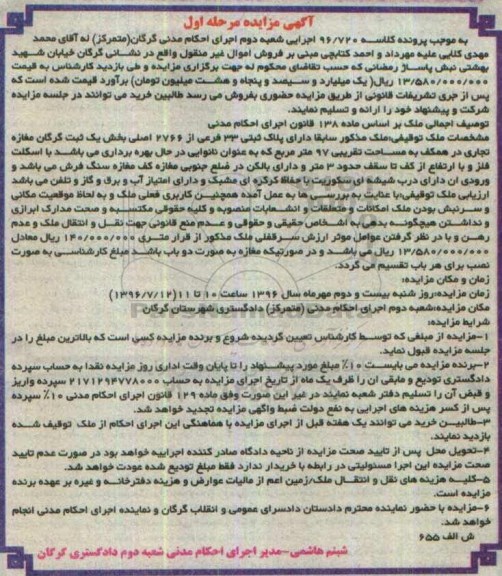 آگهی مزایده مرحله اول
به موجب پرونده کلاسه ۹۶/۷۲۰ اجرایی شعبه دوم اجرای احکام مدنی گرگان(متمرکز) له آقای محمد
مهدی کلایی علیه مهرداد و احمد کتابچی مبنی بر فروش اموال غیر منقول واقع در نشانی گرگان خیابان شهید
بهشتی نبش پاساژ رمضانی که حسب تقاضای محکوم له جهت برگزاری مزایده و طی بازدید کارشناس به قیمت
۱۳/۵۸۰/۰۰۰/۰۰۰ ریال( یک میلیارد و سیصد و پنجاه و هشت میلیون تومان) برآورد قیمت شده است که
پس از جری تشریفات قانونی از طریق مزایده حضوری بفروش می رسد طالبین خرید می توانند در جلسه مزایده
شرکت و پیشنهاد خود را ارائه و تسلیم نمایند.
توصیف اجمالی ملک بر اساس ماده ۱۳۸ قانون اجرای احکام مدنی
مشخصات ملک توقیفی:ملک مذکور سابقا دارای پلاک ثبتی ۳۳ فرعی از ۲۷۶۶ اصلی بخش یک ثبت گرگان مغازه
تجاری در همکف به مساحت تقریبی ۹۷ متر مربع که به عنوان نانوایی در حال بهره برداری می باشد با اسکلت
فلز و با ارتفاع از کف تا سقف حدود ۳ متر و دارای بالکن در ضلع جنوبی مغازه کف مغازه سنگ فرش می باشد و
ورودی ان دارای درب شیشه ای سکوریت با حفاظ کرکره ای مشبک و دارای امتیاز آب و برق و گاز و تلفن می باشد
ارزیابی ملک توقیفی:با عنایت به بررسی ها به عمل آمده همچنین کاربری فعلی ملک و به لحاظ موقعیت مکانی
و سرنبش بودن ملک امکانات و متعلقات و انشعابات منصوبه و کلیه حقوقی مکتسبه و صحت مدارک ابرازی
و نداشتن هیچگونه بدهی به اشخاص حقیقی و حقوقی و عدم منع قانونی جهت نقل و انتقال ملک و عدم
رهن و با در نظر گرفتن عوامل موثر ارزش سرقفلی ملک مذکور از قرار متری ۱۴۰/۰۰۰/۰۰۰ ریال معادل
۱۳/۵۸۰/۰۰۰/۰۰۰ ریال می باشد و در صورتیکه مغازه به صورت دو باب باشد مبلغ کارشناسی به صورت
نصب برای هر باب تقسیم می گردد.
زمان و مکان مزایده:
زمان مزایده:روز شنبه بیست و دوم مهرماه سال ۱۳۹۶ ساعت ۱۰ تا ۱۱(۱۳۹۶/۷/۱۲)
مکان مزایده:شعبه دوم اجرای احکام مدنی (متمرکز) دادگستری شهرستان گرگان
شرایط مزایده:
۱-مزایده از مبلغی که توسط کارشناس تعیین گردیده شروع و برنده مزایده کسی است که بالاترین مبلغ را در
جلسه مزایده قبول نماید.
۲-برنده مزایده می بایست ۱۰٪ مبلغ مورد پیشنهاد را تا پایان وقت اداری روز مزایده نقدا به حساب سپرده
دادگستری تودیع و مابقی ان را ظرف یک ماه از تاریخ اجرای مزایده به حساب ۲۱۷۱۲۹۴۷۷۸۰۰۰ سپرده واریز
و قبض آن را تسلیم دفتر شعبه نمایند در غیر این صورت وفق ماده ۱۲۹ قانون اجرای احکام مدنی ۱۰٪ سپرده
پس از کسر هزینه های اجرایی به نفع دولت ضبط واگهی مزایده تجدید خواهد شد.
۳-طالبین خرید می توانند یک هفته قبل از اجرای مزایده با هماهنگی این اجرای احکام از ملک توقیف شده
بازدید نمایند.
۴-تحویل محل پس از تایید صحت مزایده از ناحیه دادگاه صادر کننده اجراییه خواهد بود در صورت عدم تایید
صحت مزایده این اجرا مسئولیتی در رابطه با خریدار ندارد فقط مبلغ تودیع شده عودت خواهد شد.
۵-کلیه هزینه های نقل و انتقال ملک/زمین اعم از مالیات عوارض و هزینه دفترخانه و غیره بر عهده برنده
مزایده است.
۶-مزایده با حضور نماینده محترم دادستان دادسرای عمومی و انقلاب گرگان و نماینده اجرای احکام مدنی انجام
خواهد شد.
ش الف ۶۵۵
شبنم هاشمی-مدیر اجرای احکام مدنی شعبه دوم دادگستری گرگان